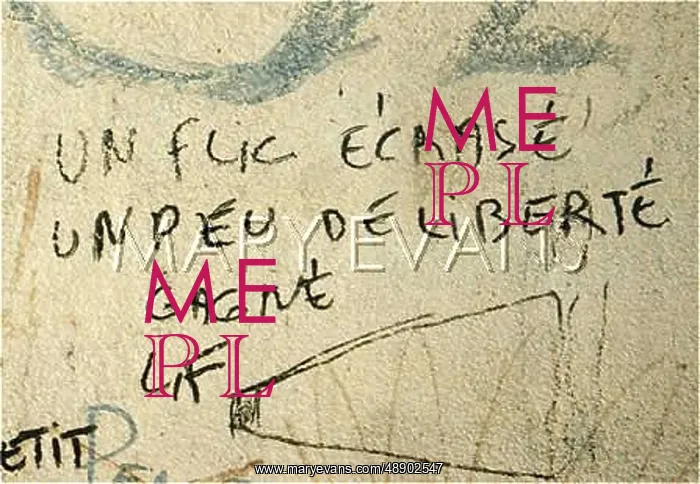 UN FLIC ÉCRASÉ
UN PEU DE LIBERTÉ
GAGNÉ
ETIT
ME
PL
ME
PL
MARY EVANS
www.maryevans.com/48902547